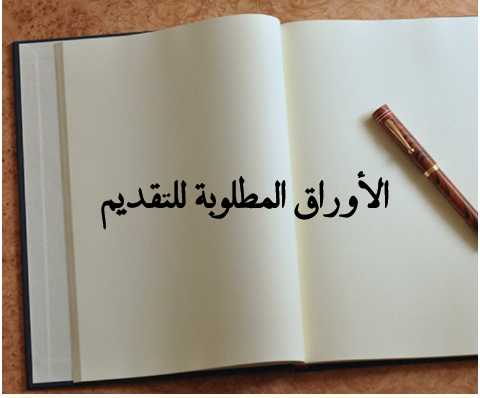 الأوراق المطلوبة للتقديم